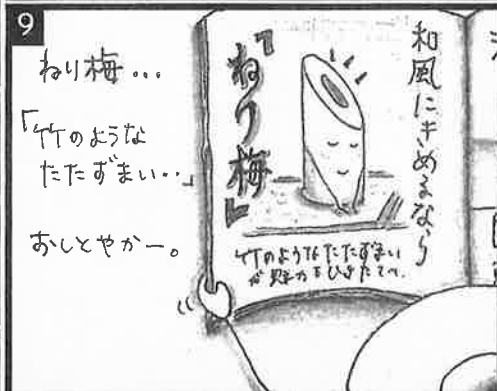 9
ねり梅…
「竹のような
たたずまい‥」
おしとやかー。
和風にきめるなら
『ねり梅』
竹のようなたたずまい
が魅力をひきたてへ